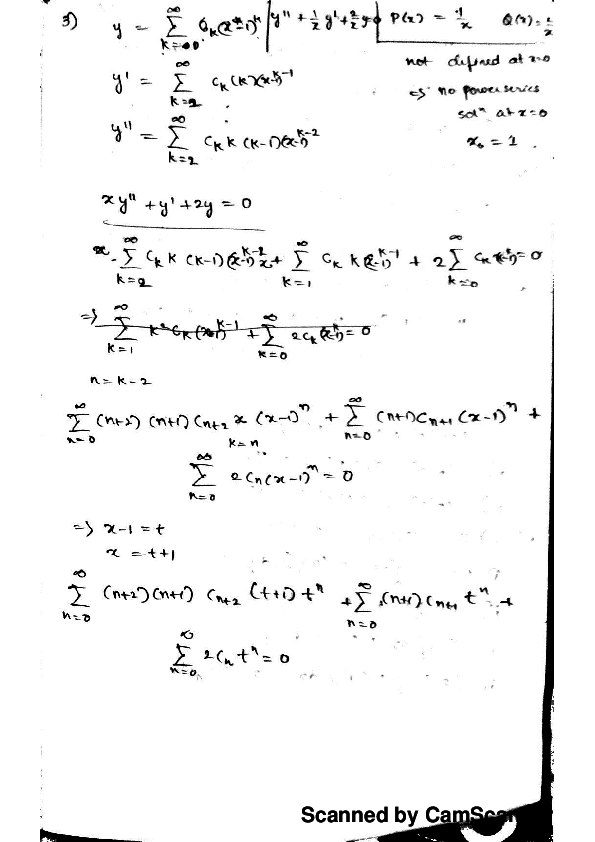 3) y = ∑_{k=0}^{∞} C_k (x-1)^k | y'' + 1/x y' + 2/x y = 0 | P(x) = 1/x Q(x) = 2/x
not defined at x=0
y' = ∑_{k=2}^{∞} C_k (k)(x-1)^{k-1} => no power series
solⁿ at x=0
y'' = ∑_{k=2}^{∞} C_k k (k-1)(x-1)^{k-2} x₀ = 1.
xy'' + y' + 2y = 0
x. ∑_{k=2}^{∞} C_k k (k-1)(x-1)^{k-2} + ∑_{k=1}^{∞} C_k k(x-1)^{k-1} + 2∑_{k=0}^{∞} C_k (x-1)^k = 0
=> ∑_{k=1}^{∞} k² C_k (x-1)^{k-1} + ∑_{k=0}^{∞} 2C_k (x-1)^k = 0
n = k-2
∑_{n=0}^{∞} (n+2)(n+1) C_{n+2} x (x-1)^n + ∑_{n=0}^{∞} (n+1)C_{n+1} (x-1)^n +
k=n
∑_{n=0}^{∞} 2C_n (x-1)^n = 0
=> x-1 = t
x = t+1
∑_{n=0}^{∞} (n+2)(n+1) C_{n+2} (t+1) t^n + ∑_{n=0}^{∞} (n+1) C_{n+1} t^n +
∑_{n=0}^{∞} 2C_n t^n = 0
Scanned by